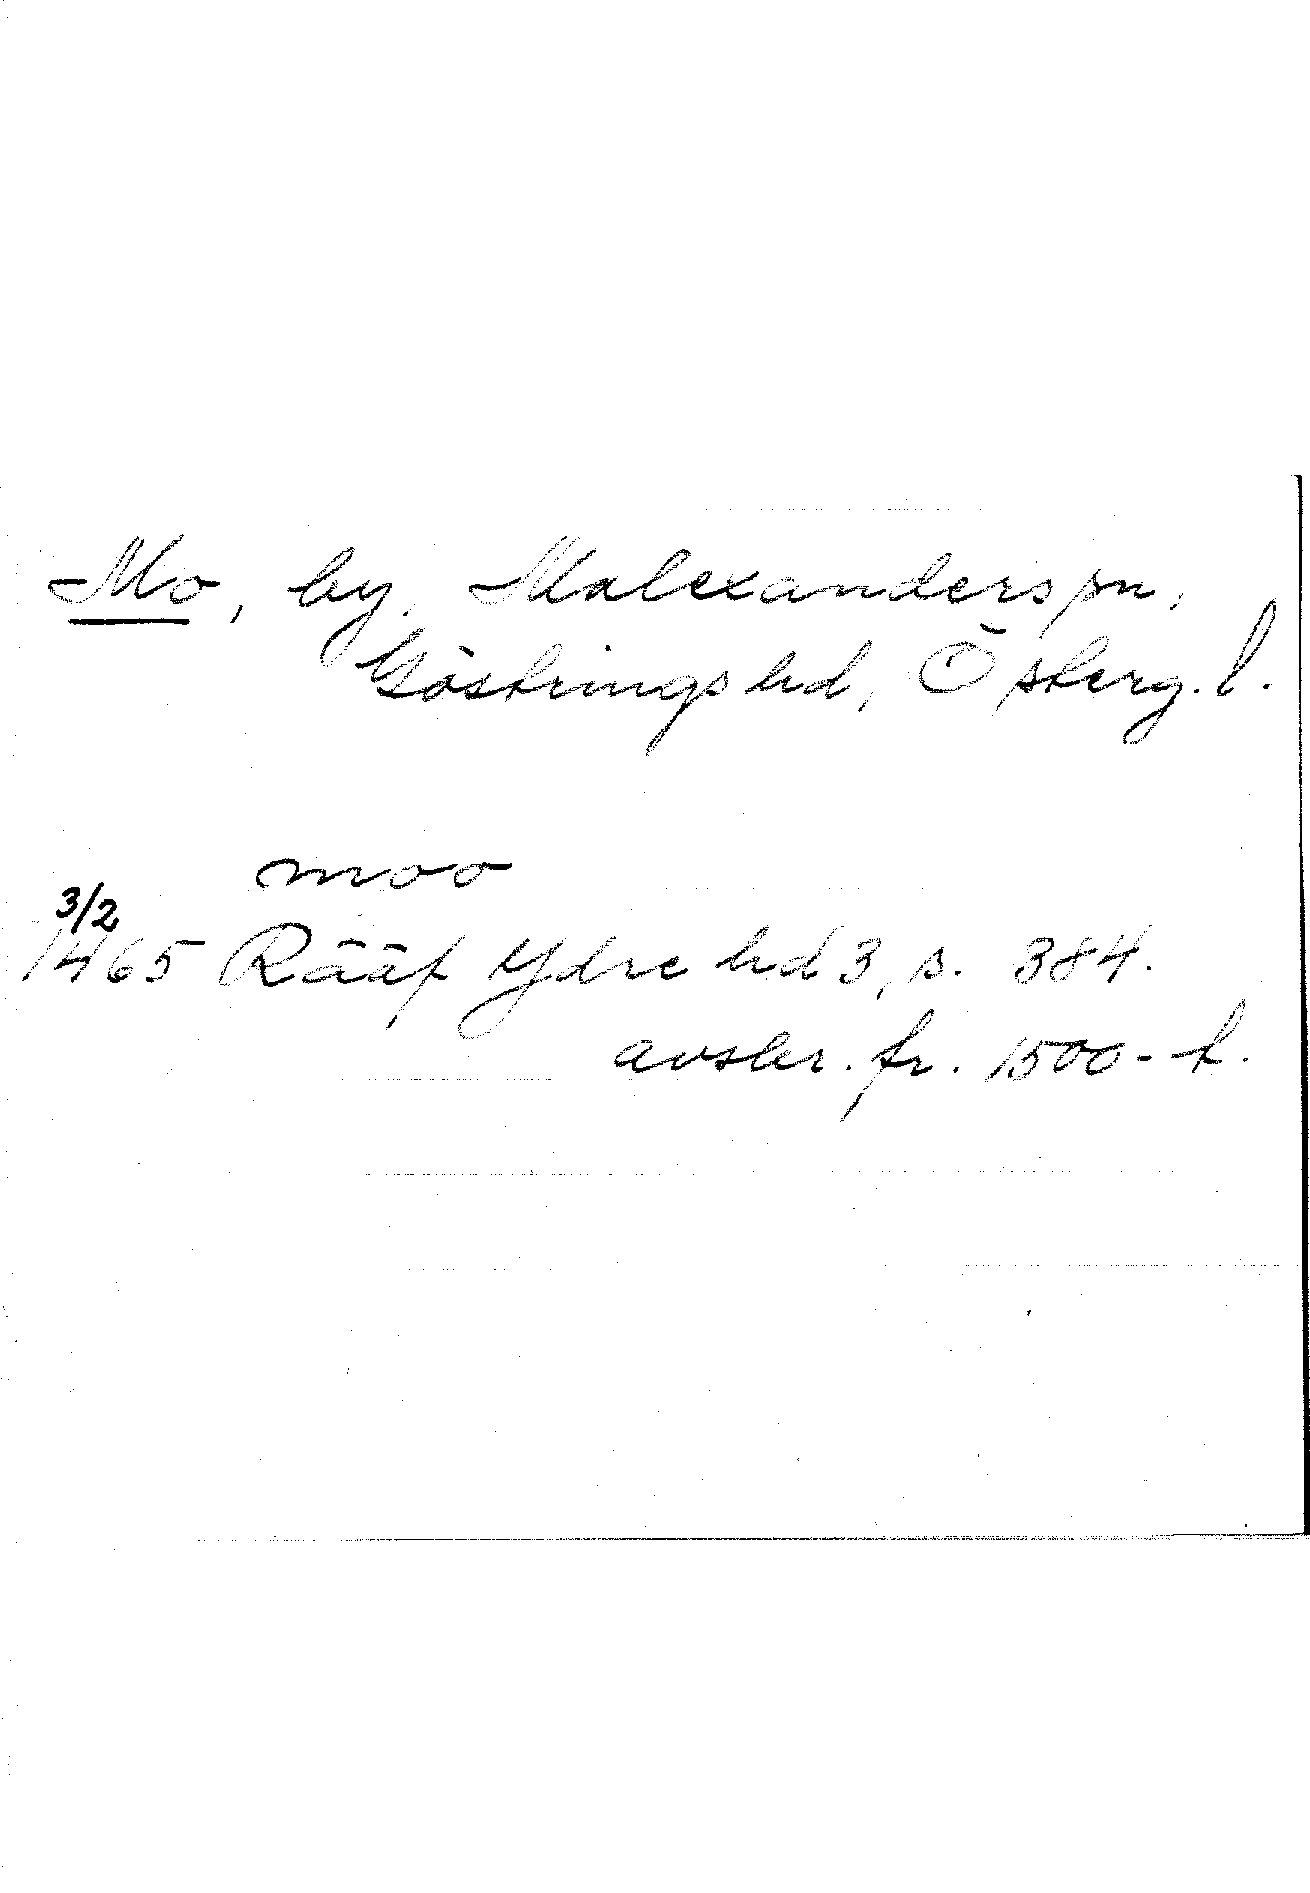 Mo, by, Malexanders sn,
Göstrings hd, Österg. l.
moo
3/2
1465 Rääf Ydre hd 3, s. 384.
avskr. fr. 1500-t.